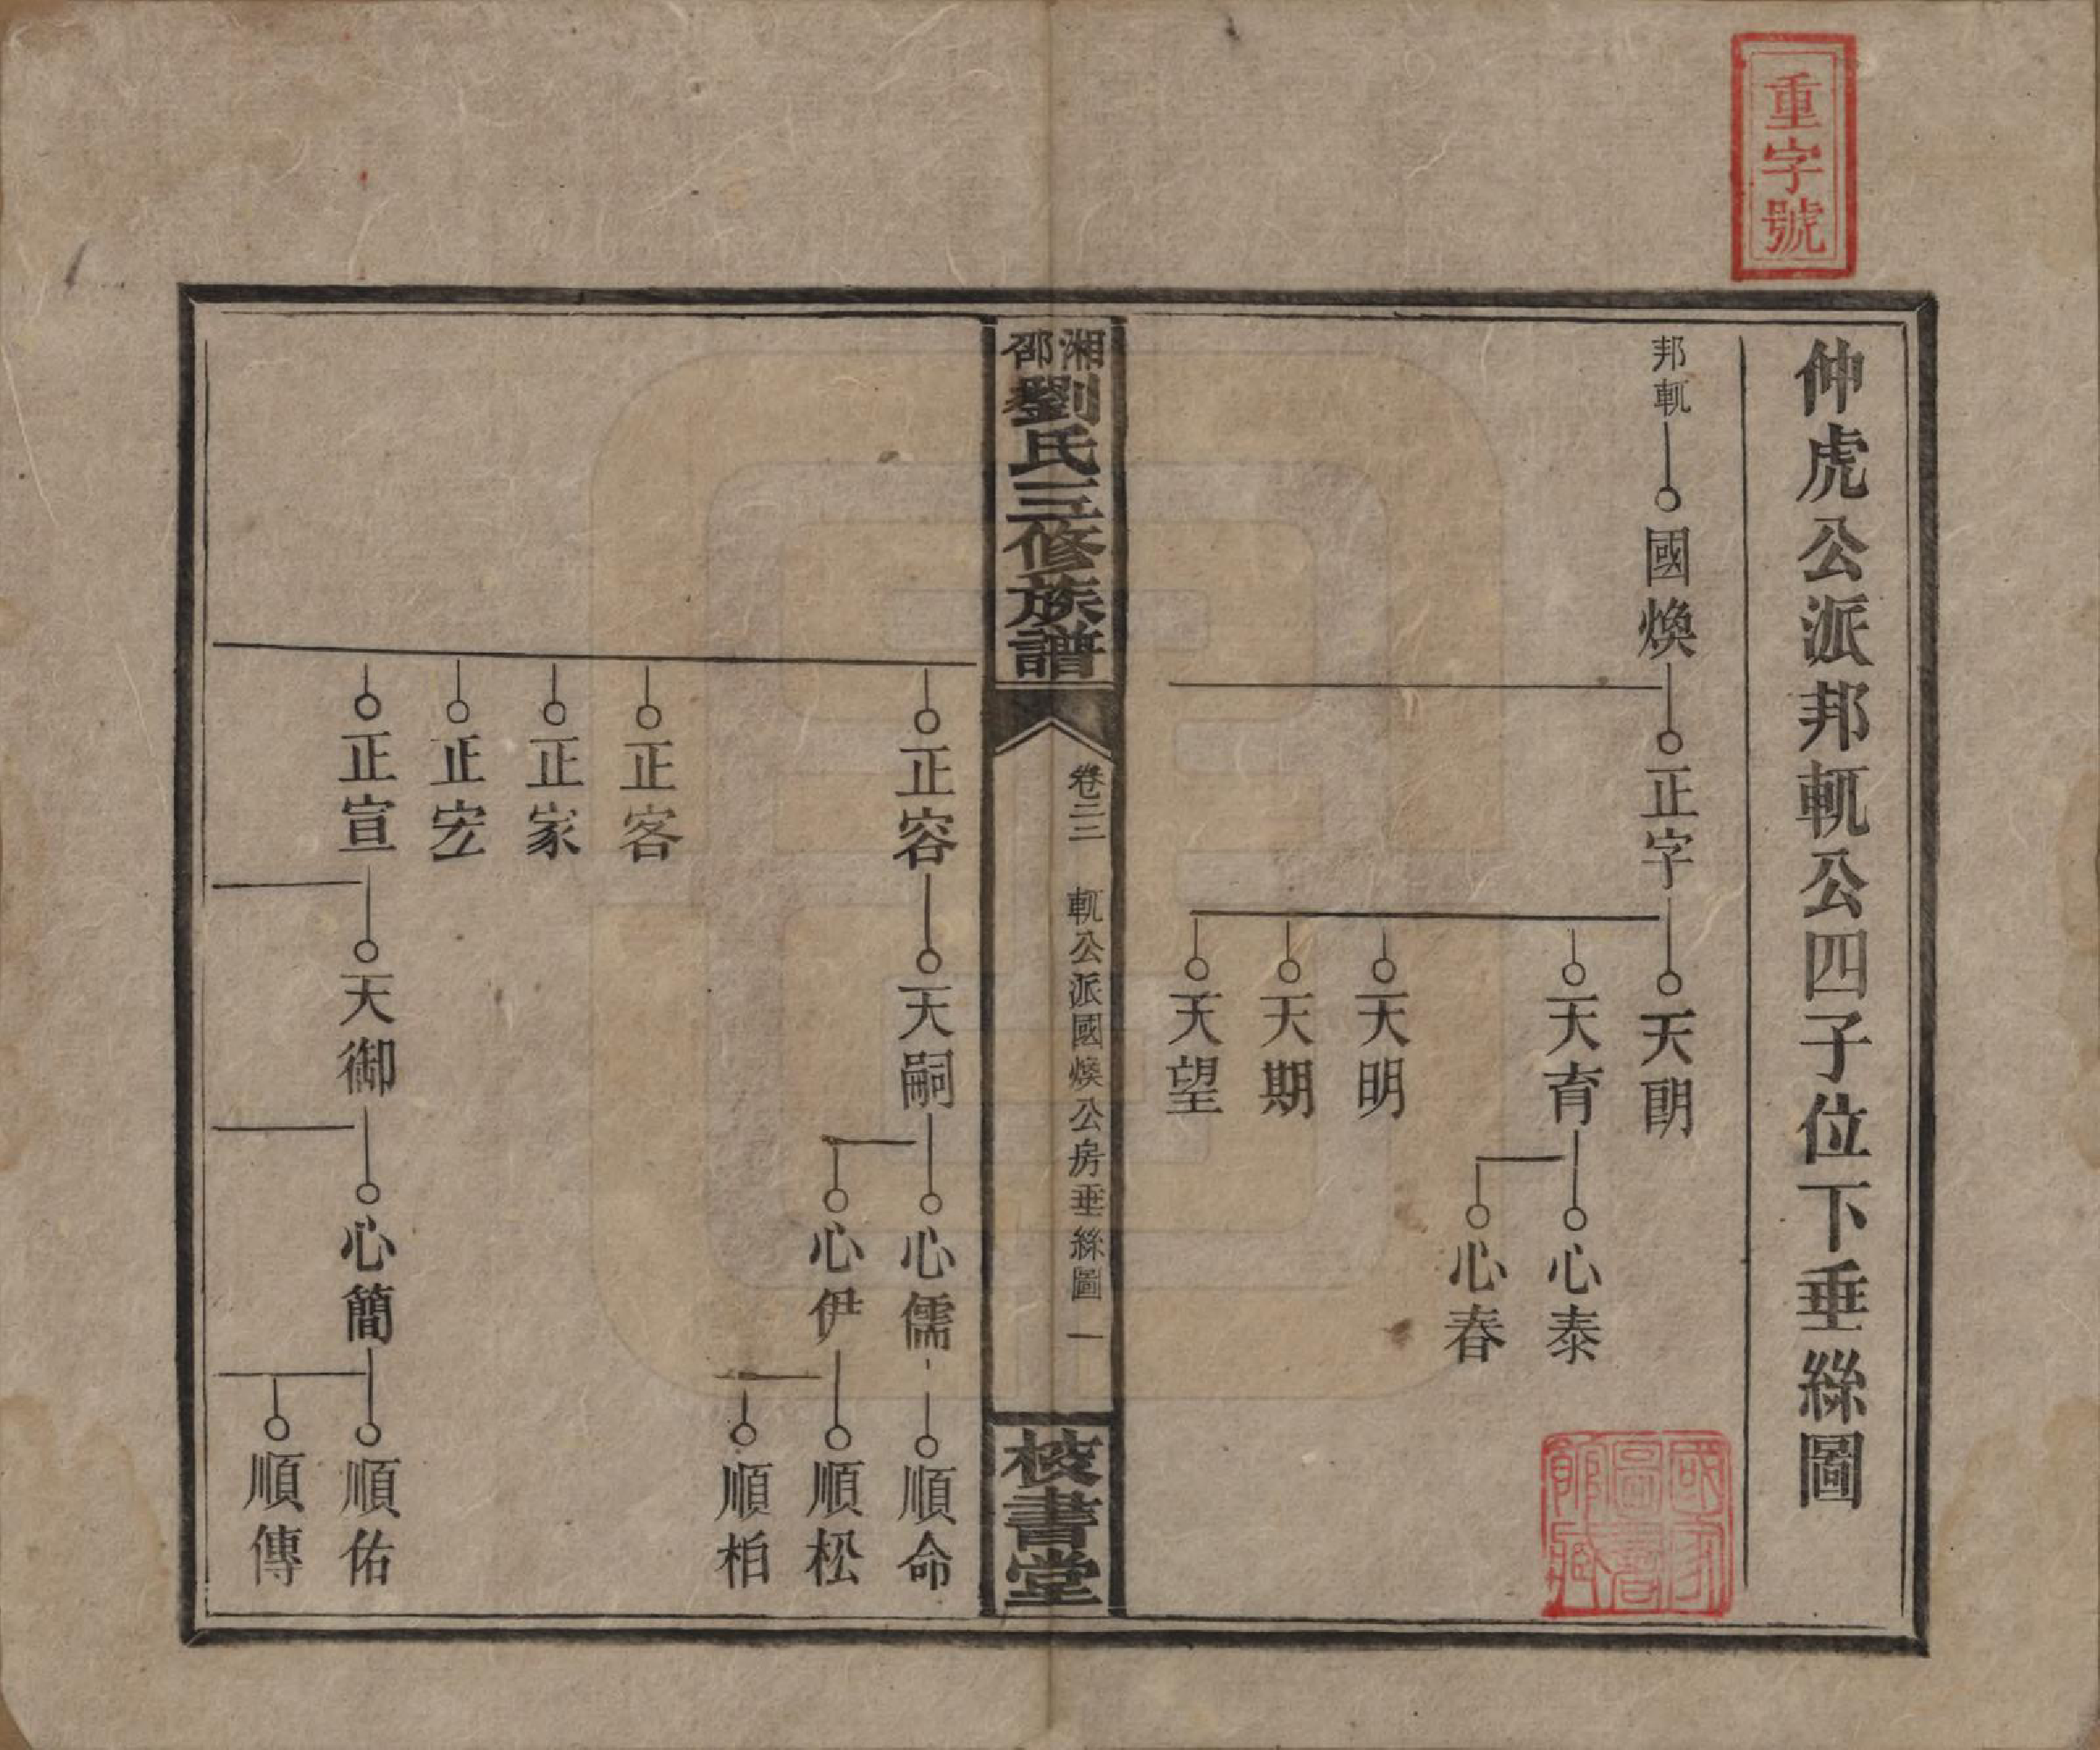 重字號
仲虎公派邦軏公四子位下垂絲圖
邦軏
國煥
正字
天朗
天育
心泰
心春
天明
天期
天望
國家圖書館藏
湘邵劉氏三修族譜
卷二三
軏公派國煥公房垂絲圖
一
校書堂
正容
天嗣
心儒
順命
心伊
順松
順柏
正客
正家
正宏
正宣
天御
心簡
順佑
順傳